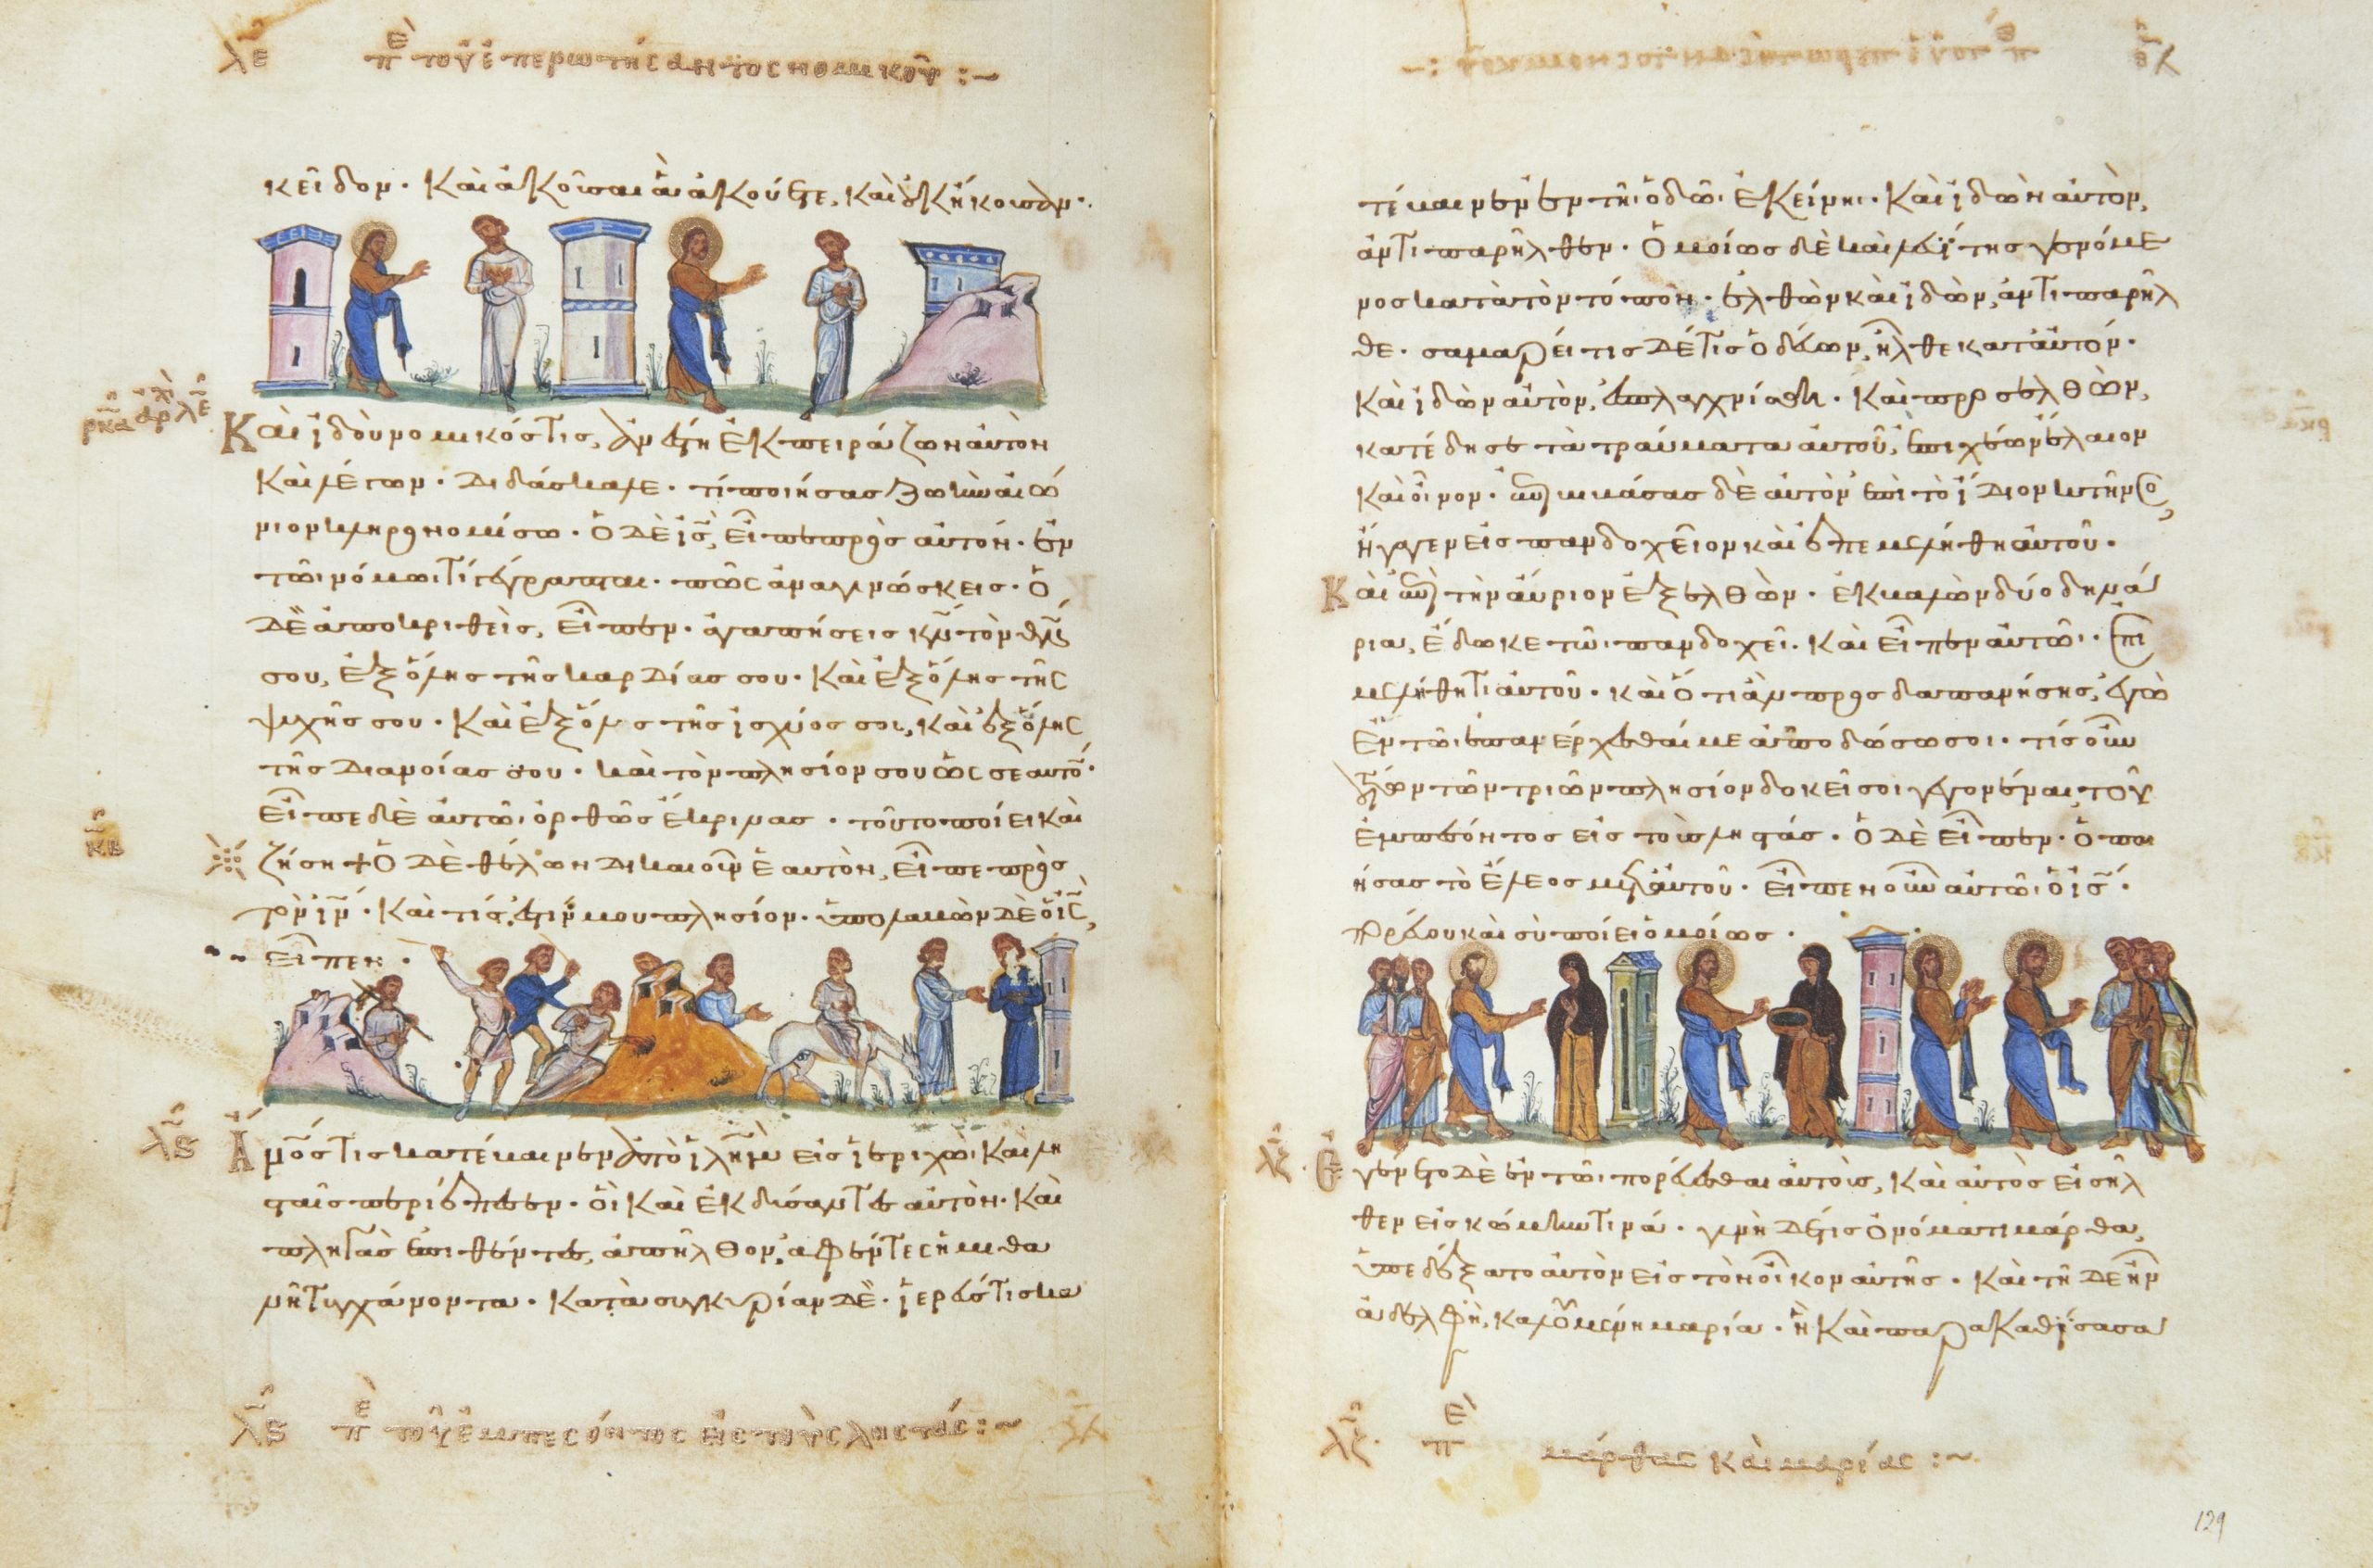 λε πε του επερωτήσαντος νομικου :~
κεῖδον· Και ἀκοῦσαι ἃ ἀκούετε, καὶ οὐκ ἤκουσαν·
ρκα αρχ λε
Καὶ ἰδοὺ νομικός τις, ἀνέστη ἐκπειράζων αὐτὸν
Καὶ λέγων· Διδάσκαλε· τί ποιήσας ζωὴν αἰώ
νιον κληρονομήσω· Ὁ δὲ ις, εἶπε πρὸς αὐτόν· ἐν
τῶι νόμωι τί γέγραπται· πῶς ἀναγινώσκεις· Ὁ
δὲ ἀποκριθεὶς, εἶπεν· ἀγαπήσεις κν τὸν θν
σου, ἐξ ὅλης τῆς καρδίας σου· Καὶ ἐξ ὅλης τῆς
ψυχῆς σου· Καὶ ἐξ ὅλης τῆς ἰσχύος σου, καὶ ἐξ ὅλης
τῆς διανοίας σου· καὶ τὸν πλησίον σου ὡς σεαυτό·
Εἶπε δὲ αὐτῶι· ὀρθῶς ἔκρινας· τοῦτο ποίει καὶ
κε
ζήση + Ὁ δὲ θέλων δικαιοῦν ἑαυτὸν, εἶπε πρὸς
τὸν ιν· Καὶ τίς ἐστίν μου πλησίον· ὑπολαβὼν δὲ ὁ ις,
εἶπεν·
λς Ἄνος τις κατέβαινεν ἀπὸ ιλημ εἰς ἰεριχώ· Καὶ λη
σταῖς περιέπεσεν· οἳ Καὶ ἐκδύσαντες αὐτὸν· Καὶ
πληγὰς ἐπιθέντες, ἀπῆλθον, ἀφέντες ἡμιθα
νῆ τυγχάνοντα· Κατὰ συγκυρίαν δὲ· ἱερεύς τις κα
λς πε του ἐμπεσόντος εἰς τοὺς ληστάς :~
τέβαινεν ἐν τῆι ὁδῶι ἐκείνηι· Καὶ ἰδὼν αὐτὸν,
ἀντιπαρῆλθεν· Ὁμοίως δὲ καὶ λευΐτης γενόμε
νος κατὰ τὸν τόπον· ἐλθὼν καὶ ἰδὼν, ἀντιπαρῆλ
θε· σαμαρείτις δέ τις ὁδεύων, ἦλθε κατ αὐτόν·
Καὶ ἰδὼν αὐτὸν, ἐσπλαγχνίσθη· Καὶ προσελθὼν,
κατέδησε τὰ τραύματα αὐτοῦ, ἐπιχέων ἔλαιον
Καὶ οἶνον· ἐπιβιβάσας δὲ αὐτὸν ἐπὶ τὸ ἴδιον κτῆνο,
ἤγαγεν εἰς πανδοχεῖον καὶ ἐπεμελήθη αὐτοῦ·
Καὶ ἐπὶ τὴν αὔριον ἐξελθὼν· ἐκβαλὼν δύο δηνά
ρια, ἔδωκε τῶι πανδοχεῖ· Καὶ εἶπεν αὐτῶι· ἐπι
μελήθητι αὐτοῦ· καὶ ὅ τι ἂν προσδαπανήσης, ἐγὼ
ἐν τῶι ἐπανέρχεσθαί με ἀποδώσω σοι· τίς οὖν
τούτων τῶν τριῶν πλησίον δοκεῖ σοι γεγονέναι τοῦ
ἐμπεσόντος εἰς τοὺς ληστάς· Ὁ δὲ εἶπεν· Ὁ ποι
ήσας τὸ ἔλεος μετ αὐτοῦ· εἶπεν οὖν αὐτῶι ὁ ις·
Πορεύου καὶ σὺ ποίει ὁμοίως·
λζ Ἐγένετο δὲ ἐν τῶι πορεύεσθαι αὐτοὺς, Καὶ αὐτὸς εἰσῆλ
θεν εἰς κώμην τινά· γυνὴ δέ τις ὀνόματι μάρθα,
ὑπεδέξατο αὐτὸν εἰς τὸν οἶκον αὐτῆς· Καὶ τῆδε ἦν
ἀδελφὴ, καλουμένη μαρία· ἣ Καὶ παρακαθίσασα
λζ πε μάρθας καὶ μαρίας :~
129